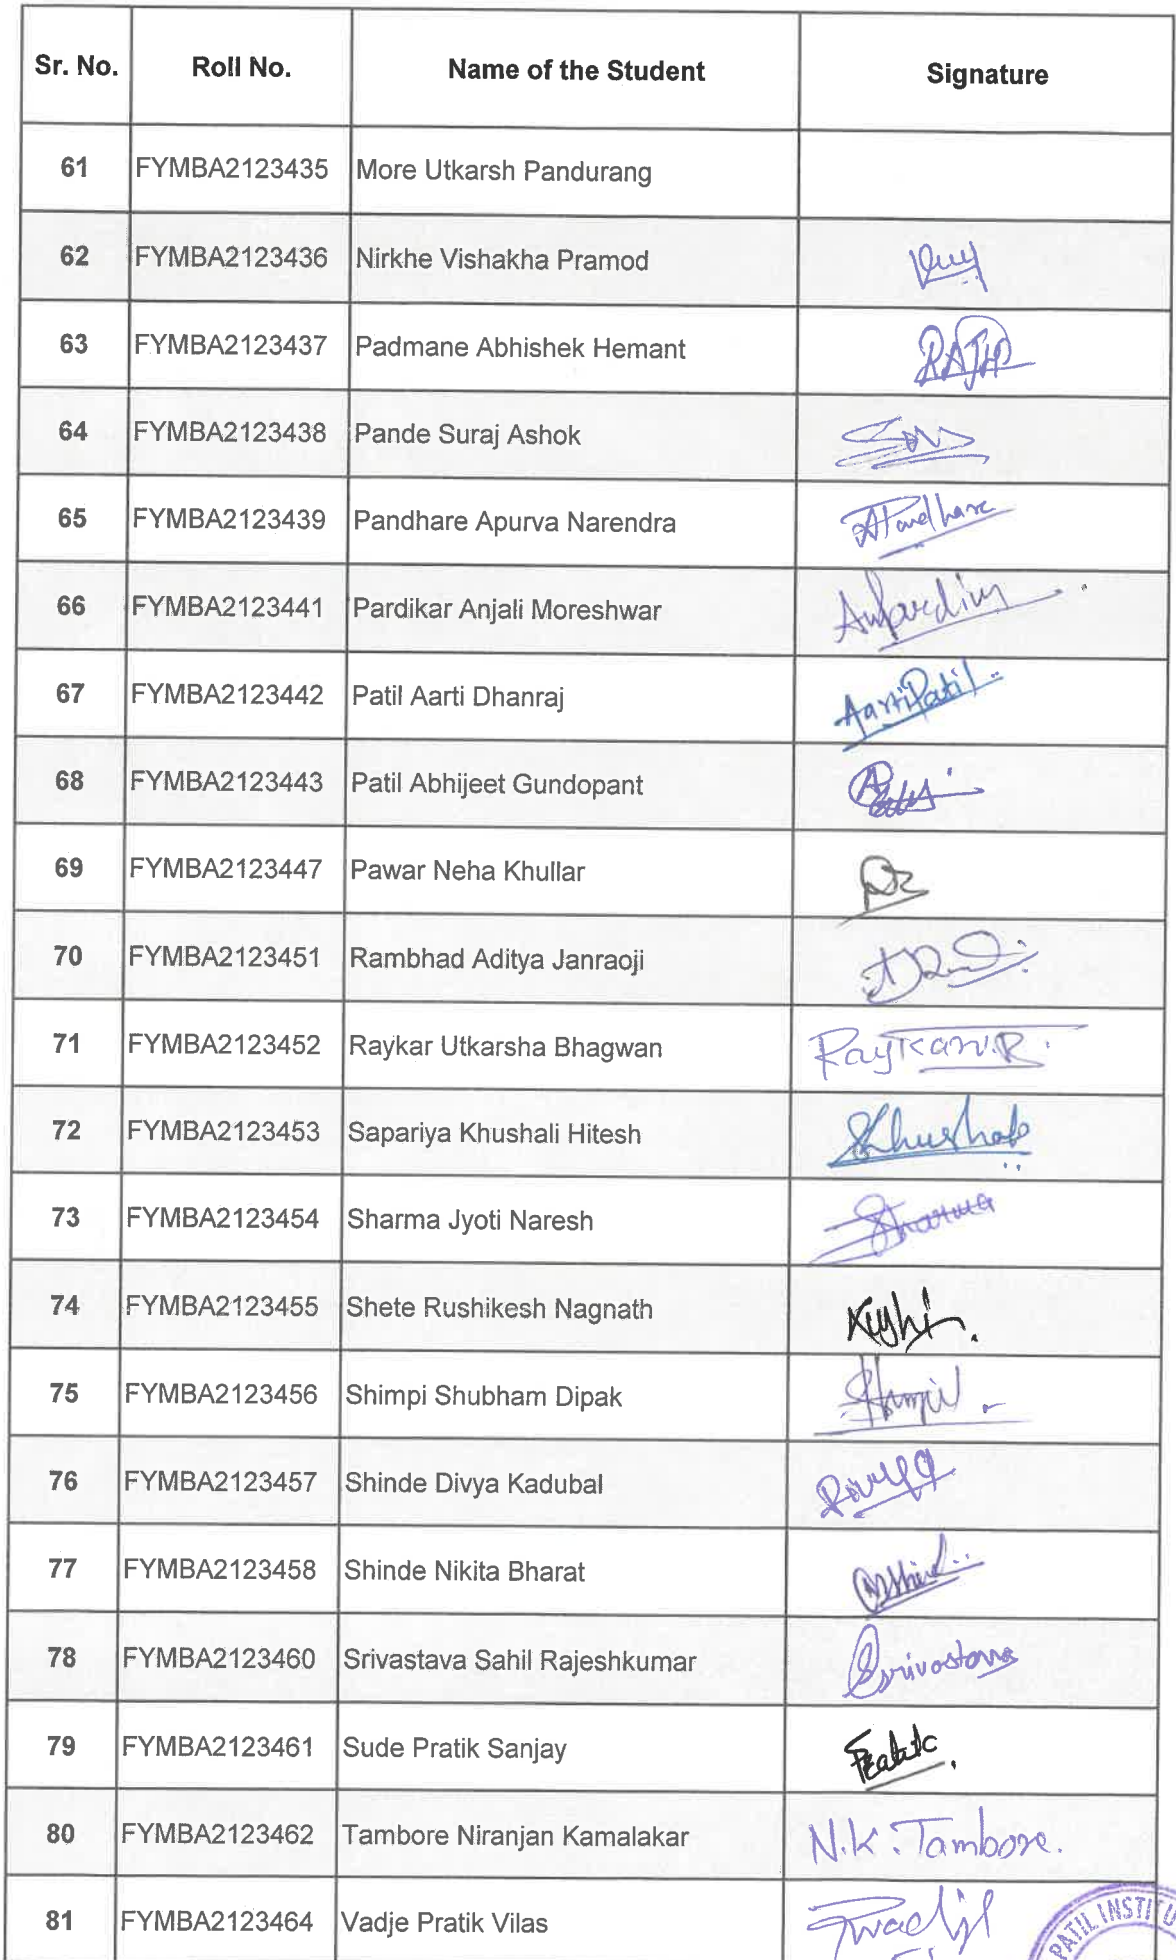 Sr. No. Roll No. Name of the Student Signature
61 FYMBA2123435 More Utkarsh Pandurang
62 FYMBA2123436 Nirkhe Vishakha Pramod
63 FYMBA2123437 Padmane Abhishek Hemant
64 FYMBA2123438 Pande Suraj Ashok
65 FYMBA2123439 Pandhare Apurva Narendra APandhare
66 FYMBA2123441 Pardikar Anjali Moreshwar
67 FYMBA2123442 Patil Aarti Dhanraj AartiPatil
68 FYMBA2123443 Patil Abhijeet Gundopant
69 FYMBA2123447 Pawar Neha Khullar
70 FYMBA2123451 Rambhad Aditya Janraoji
71 FYMBA2123452 Raykar Utkarsha Bhagwan
72 FYMBA2123453 Sapariya Khushali Hitesh
73 FYMBA2123454 Sharma Jyoti Naresh Sharma
74 FYMBA2123455 Shete Rushikesh Nagnath
75 FYMBA2123456 Shimpi Shubham Dipak
76 FYMBA2123457 Shinde Divya Kadubal
77 FYMBA2123458 Shinde Nikita Bharat
78 FYMBA2123460 Srivastava Sahil Rajeshkumar
79 FYMBA2123461 Sude Pratik Sanjay
80 FYMBA2123462 Tambore Niranjan Kamalakar N.K. Tambore.
81 FYMBA2123464 Vadje Pratik Vilas
PATIL INSTITU